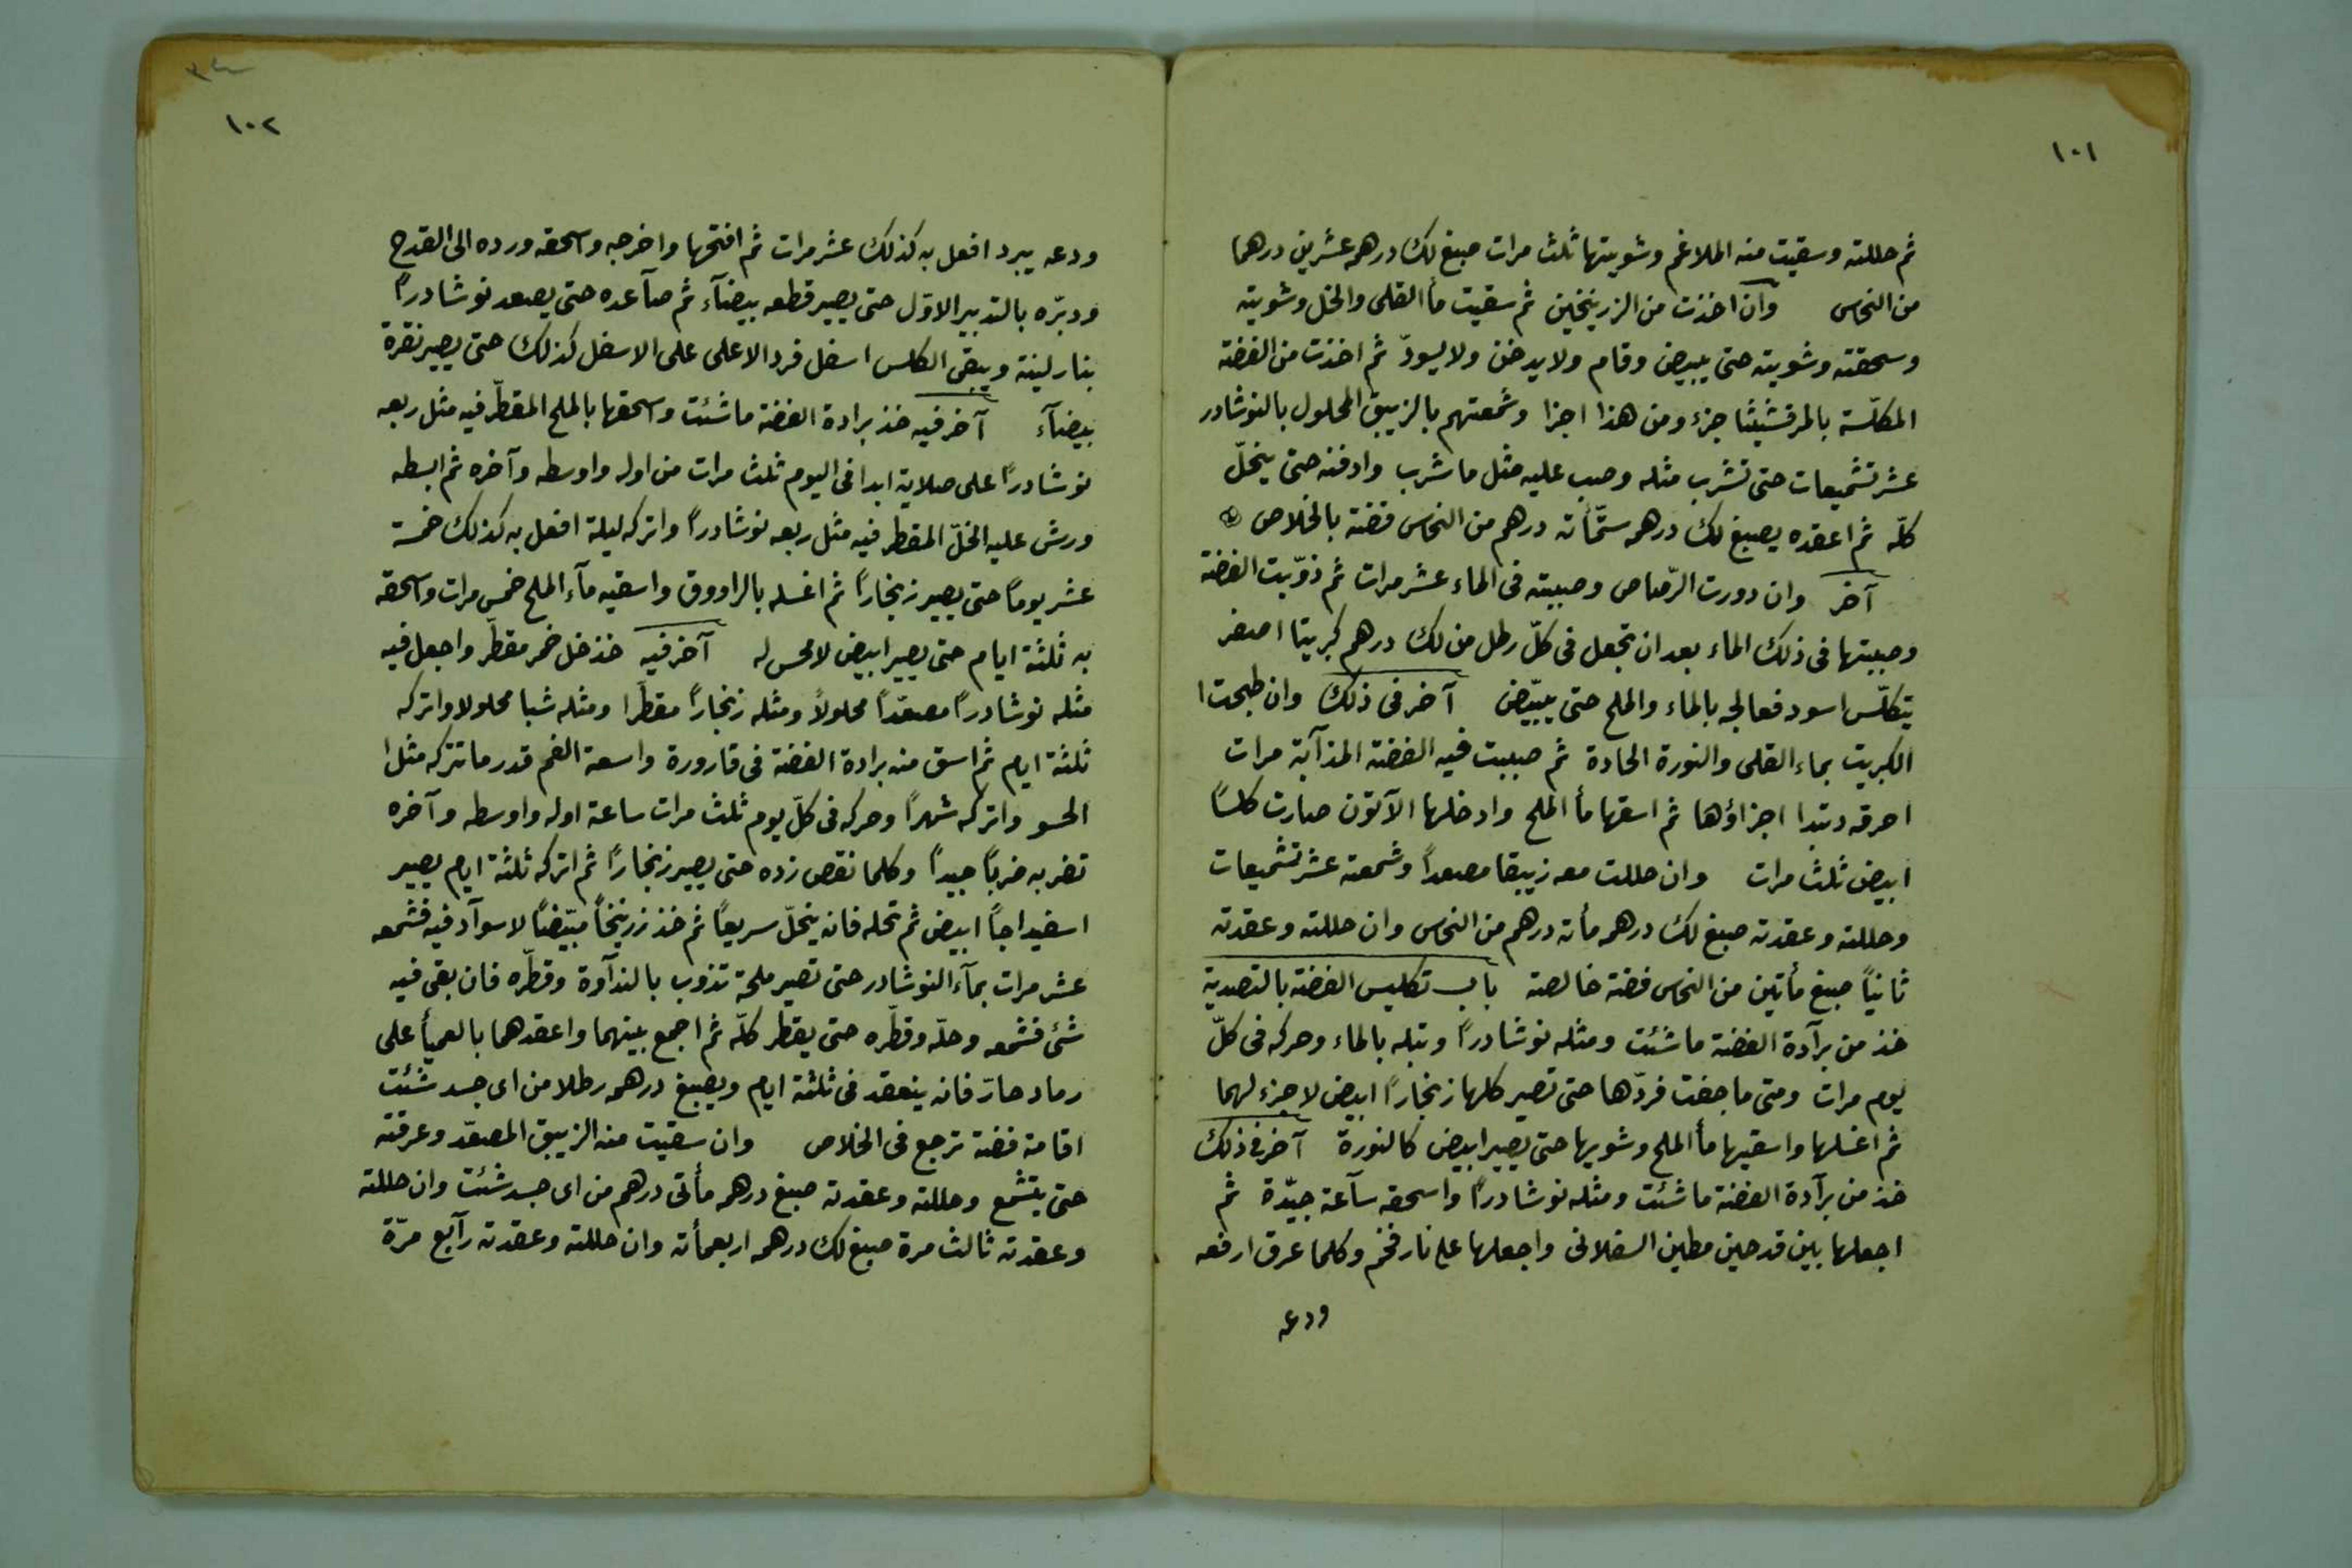 ١٠١
ثم حللته وسقيت منه الملاغم وشويتها ثلث مرات صبغ لك درهمه عشرين درهما
من النحاس وان اخذت من الزرنيخين ثم سقيت مأ القلى والخل وشويته
وسحقته وشويته حتى يبيض وقام ولا يدخن ولا يسودّ ثم اخذت من الفضة
المكلّسة بالمرقشيثا جزء ومن هذا اجزا وشمعتهم بالزيبق المحلول بالنوشادر
عشر تشميعات حتى تشرب مثله وصب عليه مثل ما شرب وادفنه حتى ينحلّ
كلّه ثم اعقده يصبغ لك درهمه ستّمأته درهم من النحاس فضة بالخلاص
آخر وان دورت الرّصاص وصببته فى الماء عشر مرات ثم ذوّبت الفضة
وصببتها فى ذلك الماء بعد ان تجعل فى كلّ رطل من لك درهم كبريتا اصفر
يتكلّس اسود فعالجه بالماء والملح حتى يبيّض آخر فى ذلك وان طبحت ا
الكبريت بماء القلى والنورة الحادة ثم صببت فيه الفضة المذآبة مرات
احرقه وتبدا اجزاؤها ثم اسقها مأ الملح وادخلها الآتون صارت كلسًا
ابيض ثلث مرات وان حللت معه زيبقا مصعداً وشمعته عشر تشميعات
وحللته وعقدته صبغ لك درهمه مأته درهم من النحاس وان حللته وعقدته
ثانيًا صبغ مأتين من النحاس فضة خالصة باب تكليس الفضة بالتصدية
خذ من برآدة الفضة ما شئت ومثله نوشادرًا وتبله بالماء وحركه فى كلّ
يوم مرات ومتى ما جفت فردّها حتى تصير كلها زنجارًا ابيض لا جزء لهما
ثم اغسلها واسقيها مأ الملح وشويها حتى يصير ابيض كالنورة آخر فى ذلك
خذ من برآدة الفضة ما شئت ومثله نوشادرًا واسحقه سآعة جيّدة ثم
اجعلها بين قدحين مطين السفلانى واجعلها على نار فخم وكلما عرق ارفعه
ودعه
١٠٢
ودعه يبرد افعل به كذلك عشر مرات ثم افتحها واخرجه واسحقه ورده الى القدح
ودبّره بالتدبير الاوّل حتى يصير قطعه بيضآء ثم صآعده حتى يصعد نوشادرًا
بنار لينة ويبقى الكلس اسفل فرد الاعلى على الاسفل كذلك حتى يصير نقرة
بيضآء آخر فيه خذ برادة الفضة ما شئت واسحقها بالملح المقطّر فيه مثل ربعه
نوشادرًا على صلاية ابدا فى اليوم ثلث مرات من اوله واوسطه وآخره ثم ابسطه
ورش عليه الخلّ المقطر فيه مثل ربعه نوشادراً واتركه ليلة افعل به كذلك خمسة
عشر يومًا حتى يصير زنجارًا ثم اغسله بالراووق واسقيه مآء الملح خمس مرات واسحقه
به ثلثة ايام حتى يصير ابيض لا محس له آخر فيه خذ خل خمر مقطّر واجعل فيه
مثله نوشادرًا مصعّداً محلولاً ومثله زنجارًا مقطّرا ومثله شبا محلولا واتركه
ثلثة ايام ثم اسق منه برادة الفضة فى قارورة واسعة الفم قدر ما تتركه مثل ا
الحسو واتركه شهرًا وحركه فى كلّ يوم ثلث مرات ساعة اوله واوسطه وآخره
تضربه ضربًا جيدًا وكلما نقص زده حتى يصير زنجارًا ثم اتركه ثلثة ايام يصير
اسفيداجًا ابيض ثم تحله فانه ينحلّ سريعًا ثم خذ زرنيخاً مبيّضًا لا سوآد فيه فشمعه
عشر مرات بمآء النوشادر حتى تصير ملحة تذوب بالندآوة وقطّره فان بقى فيه
شئ فشمعه وحلّه وقطّره حتى يقطر كلّه ثم اجمع بينهما واعقدهما بالعميأ على
رماد حارّ فانه ينعقد فى ثلثة ايام ويصبغ درهمه رطلا من اى جسد شئت
اقامة فضة ترجع فى الخلاص وان سقيت منه الزيبق المصعّد وعرقته
حتى يتشمع وحللته وعقدته صبغ درهمه مأتى درهم من اى جسد شئت وان حللته
وعقدته ثالث مرة صبغ لك درهمه اربعمأته وان حللته وعقدته رآبع مرّة